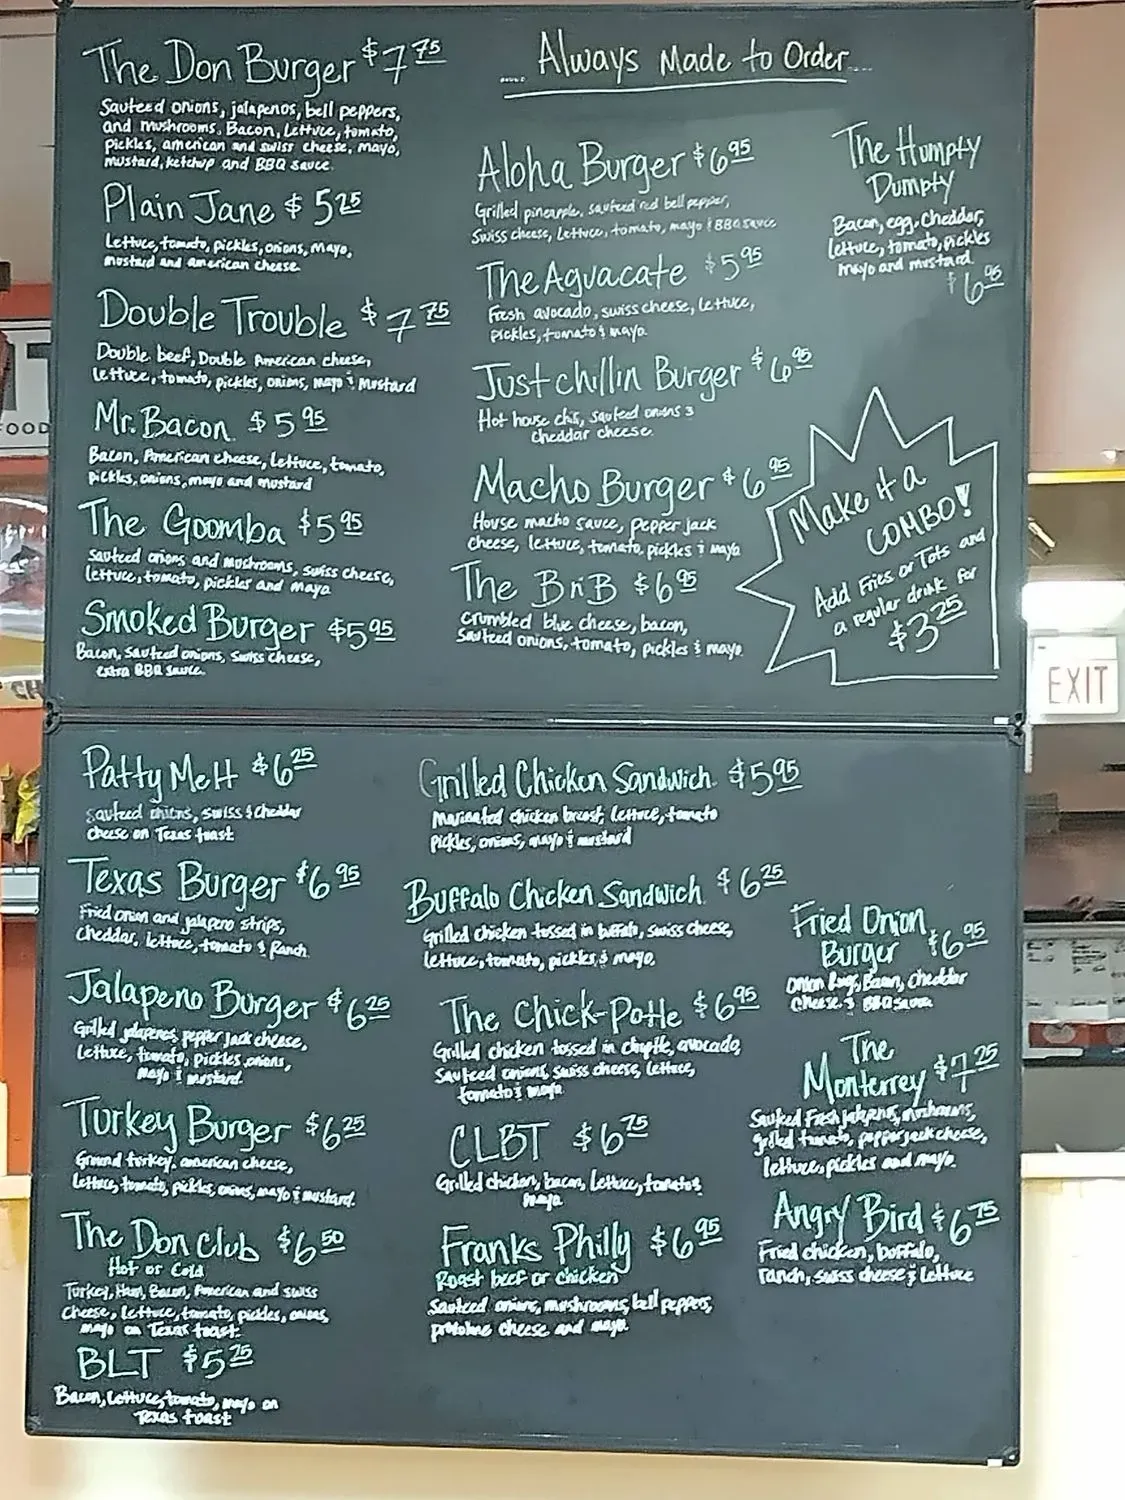 The Don Burger $7.75
Sauteed onions, jalapenos, bell peppers,
and mushrooms. Bacon, Lettuce, tomato,
pickles, american and swiss cheese, mayo,
mustard, ketchup and BBQ sauce.
Plain Jane $5.25
Lettuce, tomato, pickles, onions, mayo,
mustard and american cheese
Double Trouble $7.75
Double beef, Double American cheese,
lettuce, tomato, pickles, onions, mayo & Mustard
Mr. Bacon $5.95
Bacon, American cheese, Lettuce, tomato,
pickles, onions, mayo and mustard
The Goomba $5.95
Sauteed onions and mushrooms, swiss cheese,
lettuce, tomato, pickles and mayo
Smoked Burger $5.95
Bacon, Sauteed onions, Swiss cheese,
extra BBQ sauce.
..... Always Made to Order....
Aloha Burger $6.95
Grilled pineapple, sauteed red bell pepper,
Swiss cheese, lettuce, tomato, mayo & BBQ sauce
The Aguacate $5.95
Fresh avocado, swiss cheese, lettuce,
pickles, tomato & mayo.
Just chillin Burger $6.95
Hot house chili, sauteed onions &
cheddar cheese.
Macho Burger $6.95
House macho sauce, pepper jack
cheese, lettuce, tomato, pickles & mayo
The BnB $6.95
Crumbled blue cheese, bacon,
Sauteed onions, tomato, pickles & mayo.
The Humpty
Dumpty
Bacon, egg, Cheddar,
lettuce, tomato, pickles
mayo and mustard.
$6.95
Make it a
COMBO!
Add Fries or Tots and
a regular drink for
$3.25
FOOD
EXIT
Patty Melt $6.25
sauteed onions, swiss & cheddar
cheese on Texas toast
Texas Burger $6.95
Fried onion and jalapeno strips,
cheddar, lettuce, tomato & Ranch
Jalapeno Burger $6.25
Grilled jalapenos, pepper jack cheese,
Lettuce, tomato, pickles, onions,
mayo & mustard.
Turkey Burger $6.25
Ground turkey, american cheese,
lettuce, tomato, pickles, onions, mayo & mustard.
The Don Club $6.50
Hot or Cold
Turkey, Ham, Bacon, American and swiss
Cheese, Lettuce, tomato, pickles, onions,
mayo on Texas toast.
BLT $5.25
Bacon, Lettuce, tomato, mayo on
Texas toast
Grilled Chicken Sandwich $5.95
Marinated chicken breast, lettuce, tomato
pickles, onions, mayo & mustard
Buffalo Chicken Sandwich $6.25
Grilled chicken tossed in buffalo, swiss cheese,
lettuce, tomato, pickles & mayo.
The Chick-Potle $6.95
Grilled chicken tossed in chiptle, avocado,
Sauteed onions, swiss cheese, lettuce,
tomato & mayo
CLBT $6.75
Grilled chicken, bacon, Lettuce, tomato &
mayo
Franks Philly $6.95
Roast beef or chicken
Sauteed onions, mushrooms, bell peppers,
provolone cheese and mayo.
Fried Onion
Burger $6.95
Onion Rings, Bacon, cheddar
cheese & BBQ Sauce
The
Monterrey $7.25
Sauteed Fresh jalapenos, mushrooms,
grilled tomato, pepper jack cheese,
lettuce, pickles and mayo.
Angry Bird $6.75
Fried chicken, buffalo,
ranch, swiss cheese & lettuce